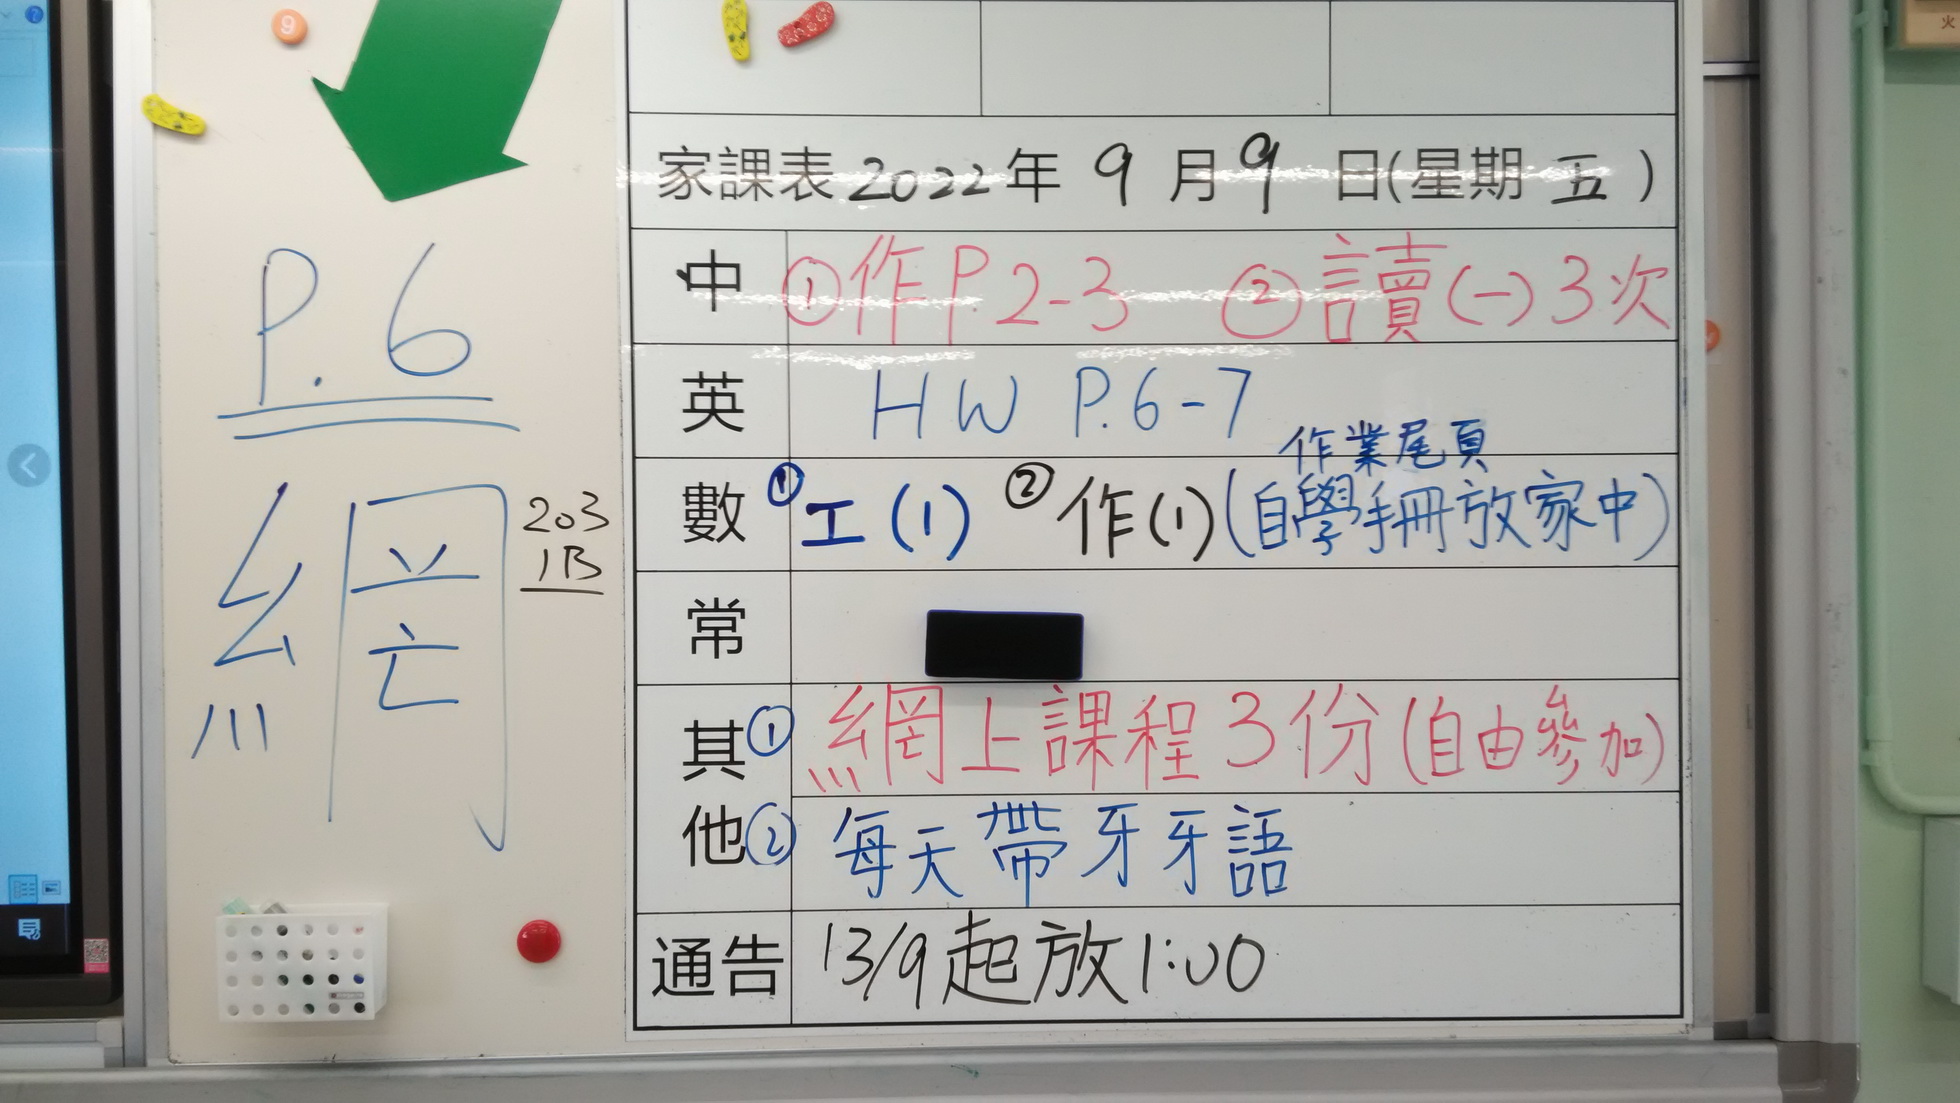 9
火
家課表 2022年 9 月 9 日(星期 五 )
中 ①作P2-3 ②讀(一)3次
英 HW P.6-7
作業尾頁
數 ①工(1) ②作(1)(自學手冊放家中)
常
其他 ①網上課程3份(自由參加)
②每天帶牙牙語
通告 13/9起放1:00
P.6
網
203
1B